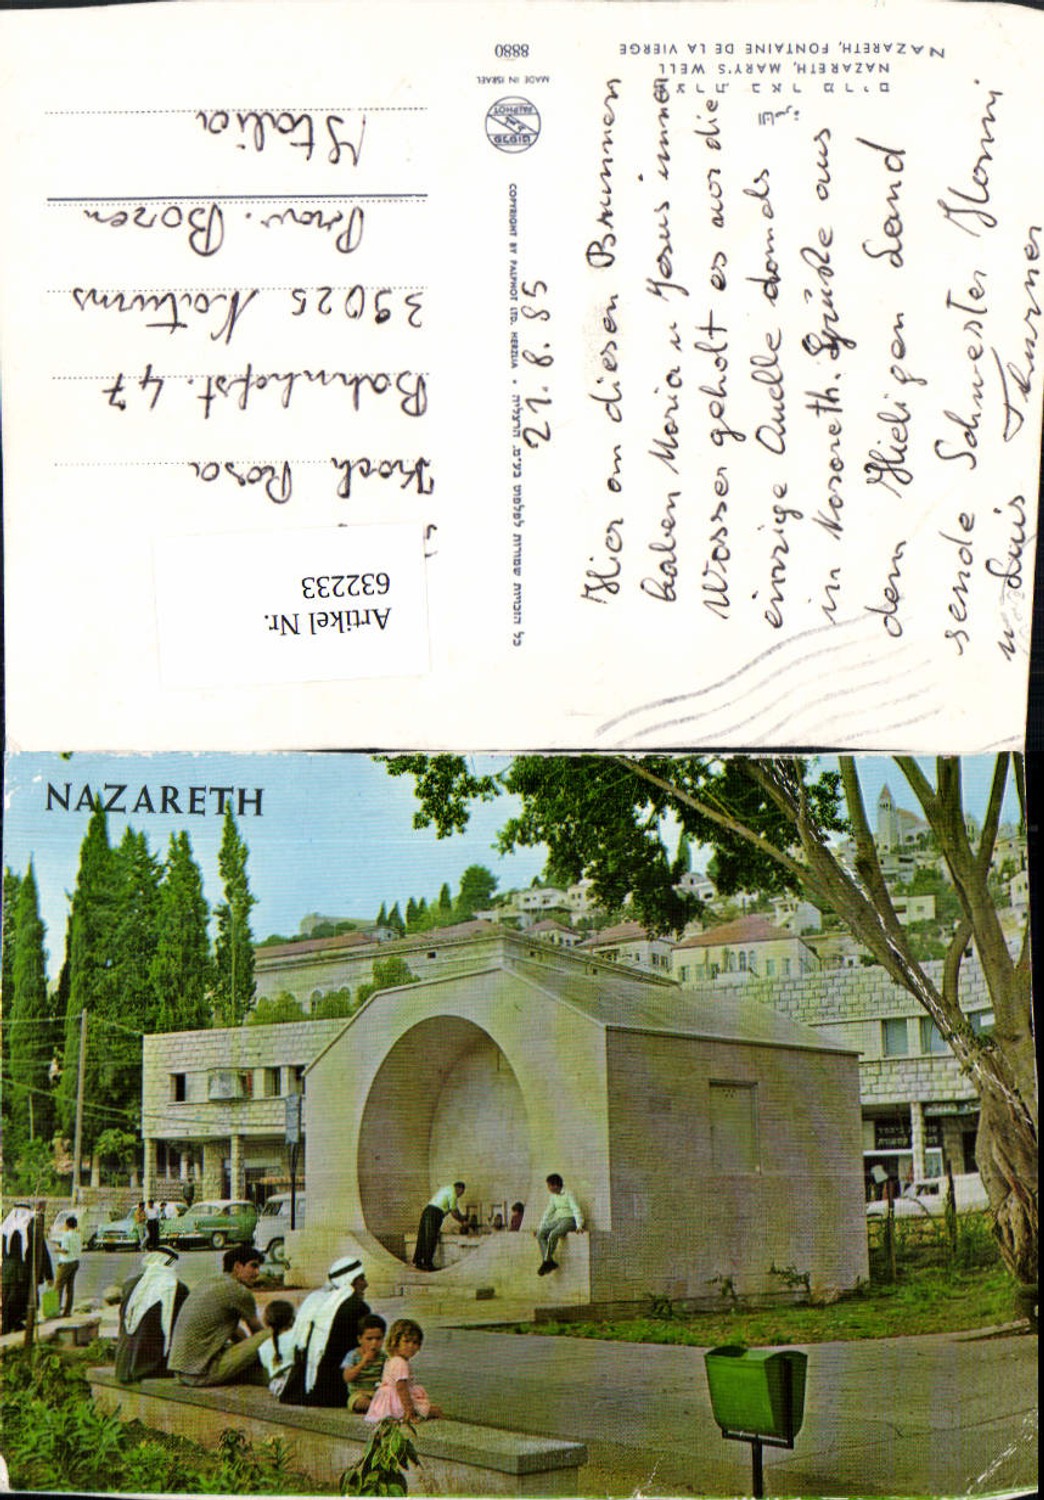 NAZARETH, FONTAINE DE LA VIERGE
NAZARETH, MARY'S WELL
الناصرة
8880
MADE IN ISRAEL
PALPHOT
פלפוט
COPYRIGHT BY PALPHOT LTD. HERZLIA • כל הזכויות שמורות לפלפוט בע"מ. הרצליה
21.8.85
Hier an diesen Brunnen
haben Maria u Jesus immer
Wasser geholt es war die
einzige Quelle damals
in Nazareth. Grüße aus
dem Hieligen Land
sende Schwester Hanni
u Luis Thurner
Koch Rosa
Bahnhofst. 47
39025 Naturns
Prov. Bozen
Italia
Artikel Nr.
632233
NAZARETH